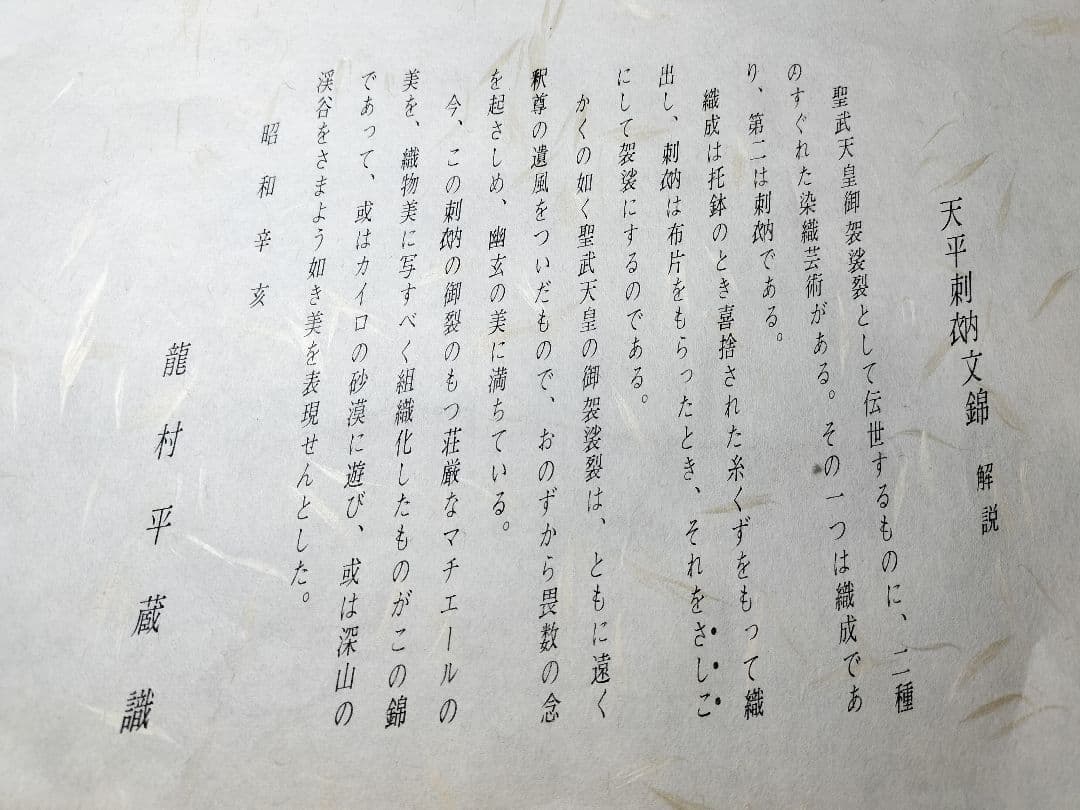 天平刺衲文錦　解説
聖武天皇御袈裟裂として伝世するものに、二種
のすぐれた染織芸術がある。その一つは織成であ
り、第二は刺衲である。
織成は托鉢のとき喜捨された糸くずをもって織
出し、刺衲は布片をもらったとき、それをさしこ
にして袈裟にするのである。
かくの如く聖武天皇の御袈裟裂は、ともに遠く
釈尊の遺風をついだもので、おのずから畏数の念
を起さしめ、幽玄の美に満ちている。
今、この刺衲の御裂のもつ荘厳なマチエールの
美を、織物美に写すべく組織化したものがこの錦
であって、或はカイロの砂漠に遊び、或は深山の
渓谷をさまよう如き美を表現せんとした。
昭和辛亥
龍村平蔵識